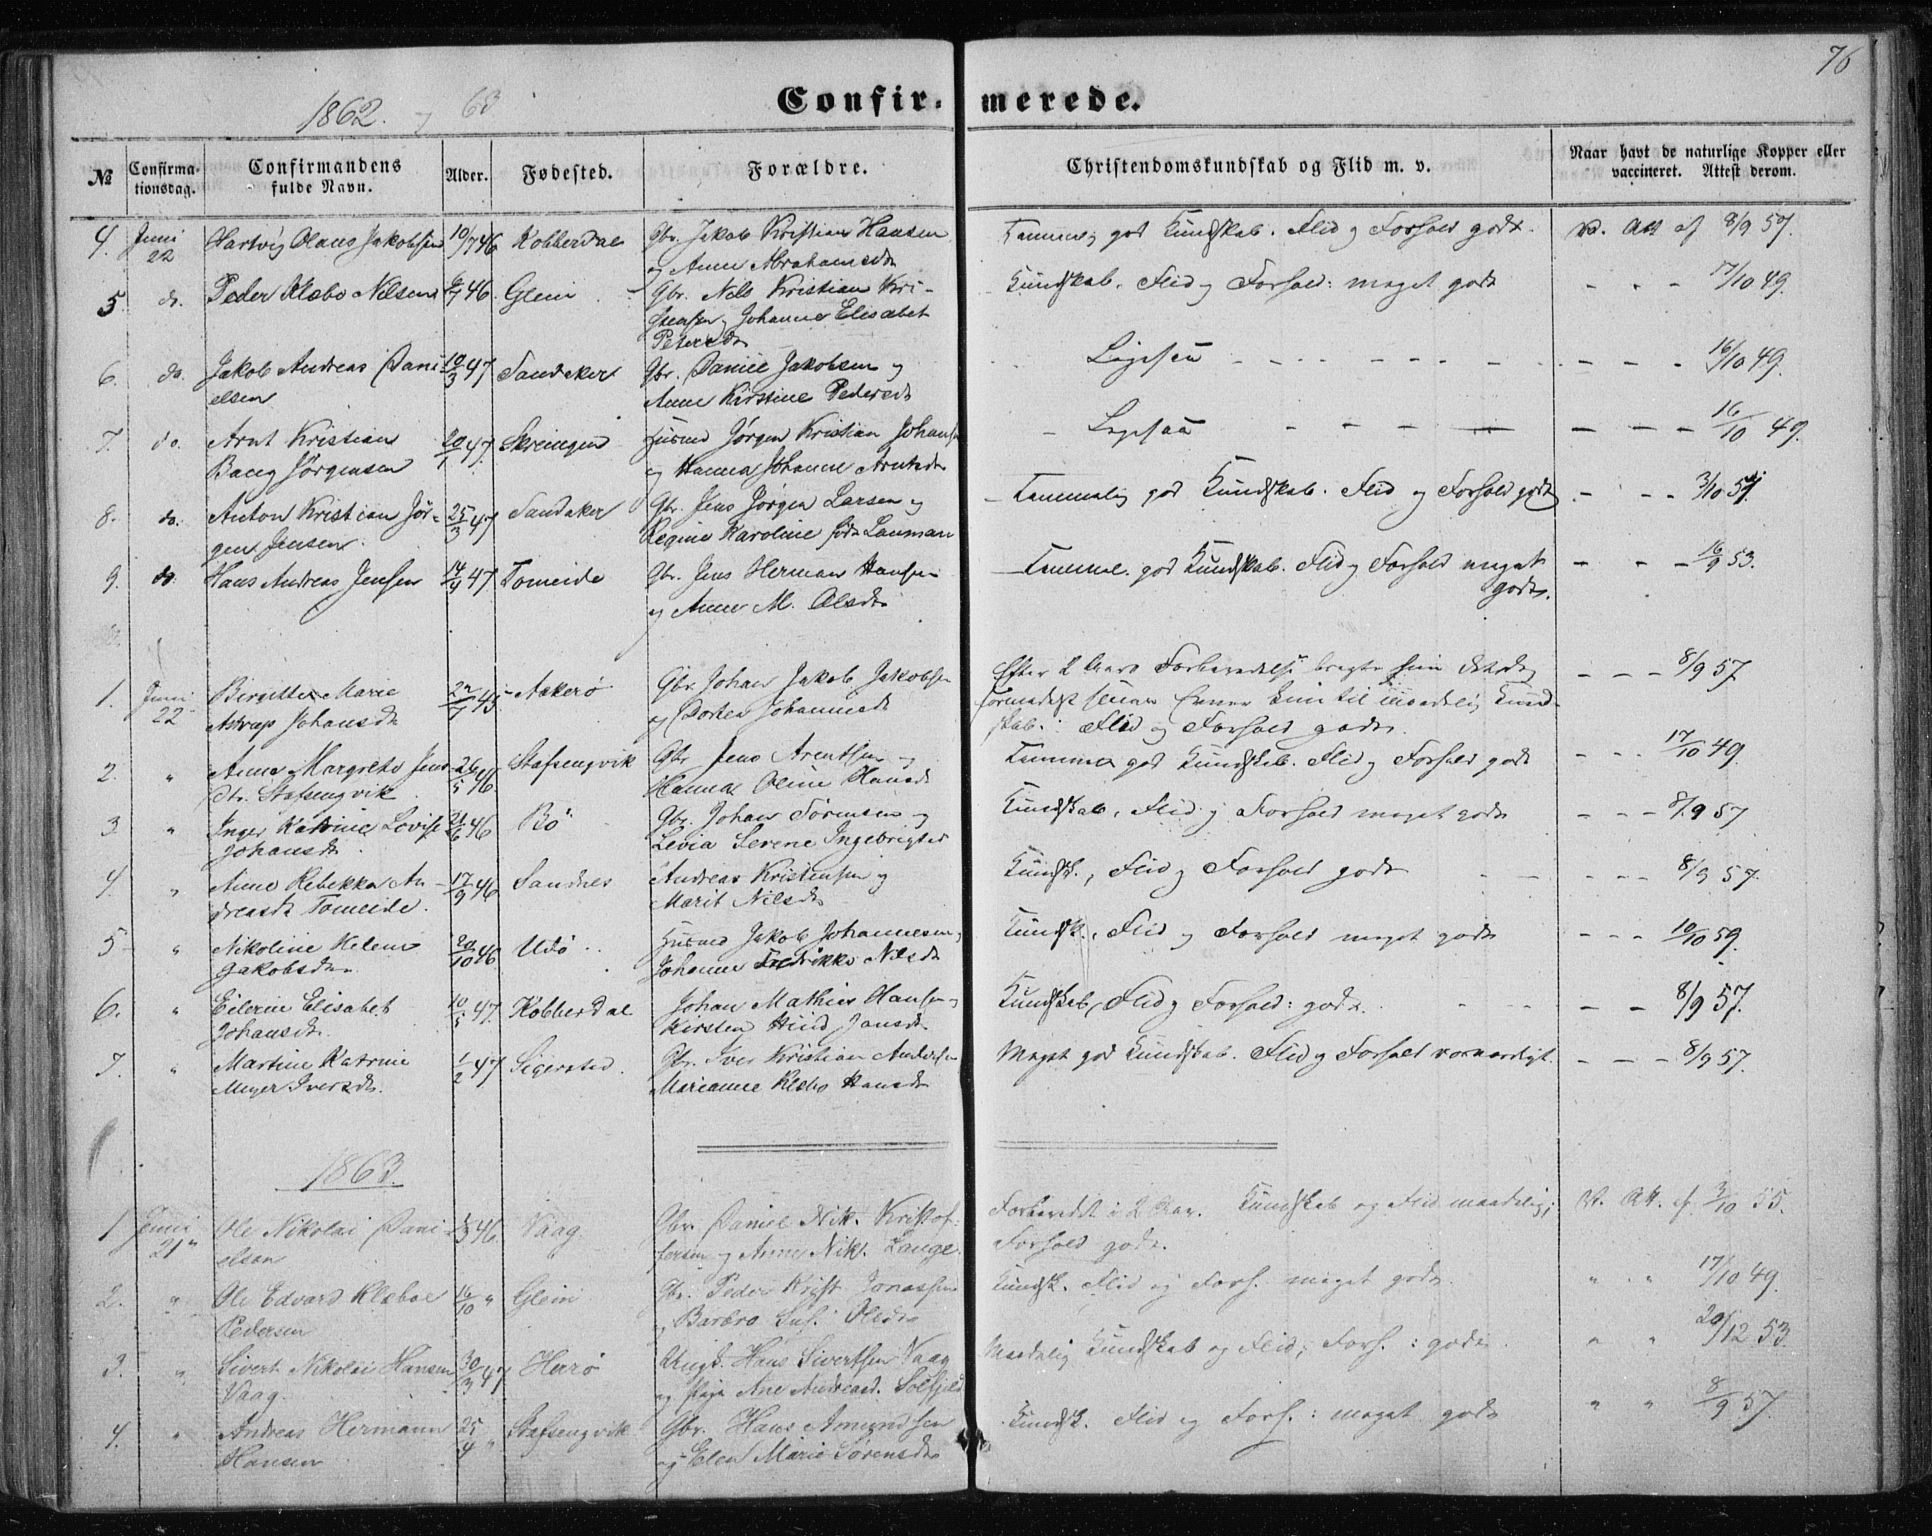 76
1862. og 63
Confirmerede.
№ Confirmationsdag. Confirmandens fulde Navn. Alder. Fødested. Forældre. Christendomskundskab og Flid m. v. Naar havt de naturlige Kopper eller vaccineret. Attest derom.
4. Juni 22 Hartvig Olaus Jakobsen 10/7 46 Kobberdal Gbr. Jakob Kristian Hansen og Anne Abrahamsdr god Kundskab. Flid og Forhold godt. v. Att af 8/9 57.
5 do. Peder Klæbo Nilsen 46. Glein Gbr. Nils Kristian Kristensen og Johanne Elisabet Petersdr Kundskab, Flid og Forhold: meget godt - - - 17/10 49.
6. do. Jakob Andreas Danielsen 10/3 47 Sandaker Gbr. Daniel Jakobsen og Anne Kirstine Pedersdr Ligesaa - - - 16/10 49.
7. do. Arnt Kristian Bang Jørgensen 20/1 47. Skeingen Husmd Jørgen Kristian Johans. og Hanna Johanne Arntsdr - Ligesaa - - - 16/10 49.
8. do. Anton Kristian Jørgen Jensen. 25/3 47 Sandaker Gbr. Jens Jørgen Larsen og Regine Karoline født Lauman Temmelig god Kundskab. Flid og Forhold godt - - - 3/10 51
9. do. Hans Andreas Jensen 14/4 47 Tomeide Gbr. Jens Herman Hansen og Anne M. Olsdr Temmel. god Kundskab. Flid og Forhold meget godt. - - - 16/9 53.
1. Juni 22 Birgitte Marie Astrup Johansdr 45 Aakerø Gbr Johan Jakob Jakobsen og Dortea Johannesdr Efter 2 Aars Forberedelse bragte sin Evner kun til maadelig Kundskab. Flid og Forhold godt. - - - 8/9 57
2. " Anne Margrete Jensdtr. Stafsengvik 26/5 46 Stafsengvik Gbr Jens Arentsen og Hanna Oline Hansdr god Kundskab. Flid og Forhold godt - - - 17/10 49.
3 " Inger Katrine Lovise Johansdr. 21/6 46 Bö Gbr. Johan Sörensen og Levia Serene Ingebrigtsd Kundskab, Flid og Forhold meget godt - - - 8/9 57
4. " Anne Rebekka Andreasdr Tomeide. 17/9 46 Sandnes Andreas Kristensen og Marit Nilsdr Kundsk., Flid og Forhold godt - - - 8/9 57.
5 " Nikoline Helene Jakobsdr. 20/10 46 Udö Husmd Jakob Johannesen og Johanne Fredrikke Nilsdr Kundsk., Flid og Forhold meget godt - - - 10/10 59.
6. " Eilerine Elisabet Johansdr. 10/5 47. Kobberdal Johan Mathias Hansen og Kirsten Hiid Jansdr Kundskab, Flid og Forhold: godt. - - 8/9 57.
7. " Martine Katrine Meyer Iversdr. 1/2 47 Sigersted. Gbr. Iver Kristian Andersen Marianne Klæbo Hansdr Meget god Kundskab. Flid og Forhold - - - 8/9 57.
1863.
1 Juni 21" Ole Nikolai Danielsen 46. Vaag Gbr. Daniel Nik. Kristoffersen og Anne Nik. Lange. Forberedt i 2 Aar. Kundskab og Flid maadelig; Forhold godt. V. Att. af 3/10 55.
2. " Ole Edvard Klæboe Pedersen 16/10 " Glein Gbr. Peder Krist Jonassen og Barbro Sus. Olsdr Kundsk. Flid og Forh. meget godt. " " 17/10 49.
3. " Sivert Nikolai Hansen Vaag. 30/3 47 Herrø Ungk. Hans Sivertsen Vaag og Pige Ane Andreasd. Solfjeld Maadelig Kundskab og Flid, Forh.: godt. " " 20/12 53.
4. " Andreas Hermann Hansen 25/4 " Stafsengvik Gbr. Hans Amundsen og Elen Marie Sörensdr Kundsk. Flid og Forh.: meget godt " " 8/9 57.